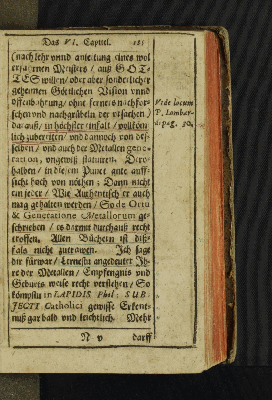 Das VI. Capitel. 181
(nach lehr vnnd anleitung eines wol
erfarnen Meisters / auß GOT-
TES willen / oder aber sonderlicher
geheimen Göttlichen Vision vnnd
offenbahrung / ohne fernere nachfor-
schen vnd nachgrübeln der vrsachen)
daraus / in höchster einfalt / vollköm
lich zubereiten / vnd dannoch von des-
selben / vnd auch der Metallen gene-
ration, vngewiß statuiren. Dero-
halben / in diesem Punct gute auff-
sicht hoch von nöthen: Dann nicht
ein jeder / Wie Authentisch er auch
mag gehalten werden / So de Ortu
& Generatione Metallorum ge-
schrieben / es darmit durchauß recht
troffen. Allen Büchern ist diß-
fals nicht zutrawen. Ich sage
dir fürwar / Lernestu angedeuter Jh-
re der Metallen / Empfengnis vnd
Geburts weise recht verstehen / So
kömpstu in LAPIDIS Phil: SUB-
JECTI Catholici gewisse Erkent-
nuß gar bald vnd leichtlich. Mehr
N v darff
Vide locum
P. Lombar-
di pag. 30.